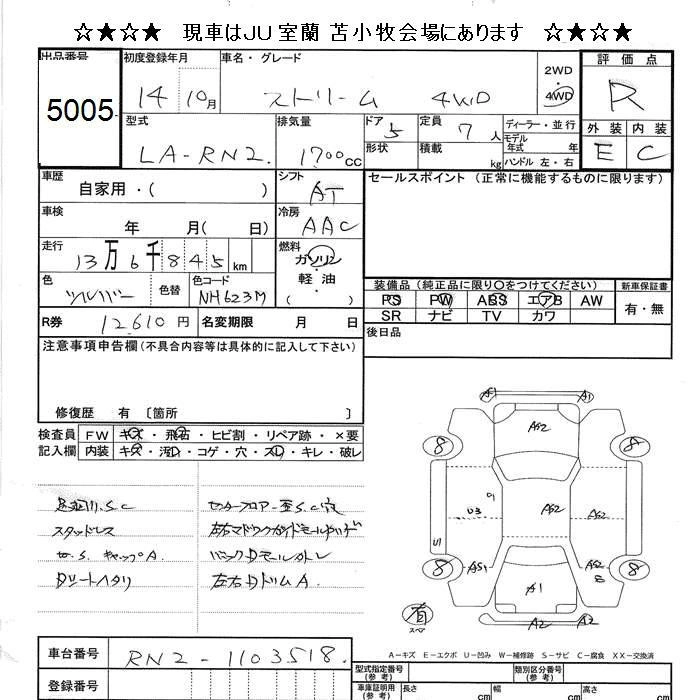 ☆★☆★ 現車はJU室蘭 苫小牧会場にあります ☆★☆★
出品番号
5005
初度登録年月
14 10月
車名・グレード
ストリーム 4WD
2WD
4WD
評価点
R
外装 内装
E C
型式
LA-RN2.
排気量
1700cc
ドア 5
形状
定員 7人
積載 kg
ディーラー・並行
モデル年式 年
ハンドル 左・右
車歴
自家用・( )
シフト
AT
セールスポイント (正常に機能するものに限ります)
車検
年 月( 日)
冷房
AAC
走行
13万6千845km
燃料
ガソリン
軽油
( )
色
シルバー
色替
色コード
NH623M
装備品 (純正品に限り〇をつけてください) 新車保証書
PS PW ABS エアB AW
SR ナビ TV カワ
有・無
R券 12610円 名変期限 月 日
後日品
注意事項申告欄(不具合内容等は具体的に記入して下さい)
修復歴 有 〔箇所 〕
検査員記入欄
FW キズ・飛石・ヒビ割・リペア跡・×要
内装 キズ・汚れ・コゲ・穴・スレ・キレ・破レ
スタッドレス
A1 A1
A52
8 8
U3 A52 A52
U1
8 A51 A52 8
A1
有
スペア
A2 A2
A-キズ E-エクボ U-凹み W-補修跡 S-サビ C-腐食 XX-交換済
車台番号 RN2-1103518.
登録番号
型式指定番号(参考)
類別区分番号(参考)
車庫証明用(参考) 長さ cm 幅 cm 高さ cm